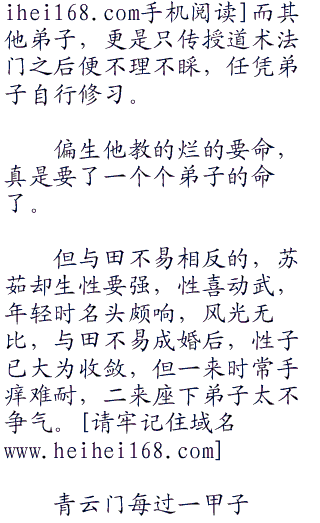 ihei168.com手机阅读]而其
他弟子，更是只传授道术法
门之后便不理不睬，任凭弟
子自行修习。
偏生他教的烂的要命，
真是要了一个个弟子的命
了。
但与田不易相反的，苏
茹却生性要强，性喜动武，
年轻时名头颇响，风光无
比，与田不易成婚后，性子
已大为收敛，但一来时常手
痒难耐，二来座下弟子太不
争气。[请牢记住域名
www.heihei168.com]
青云门每过一甲子